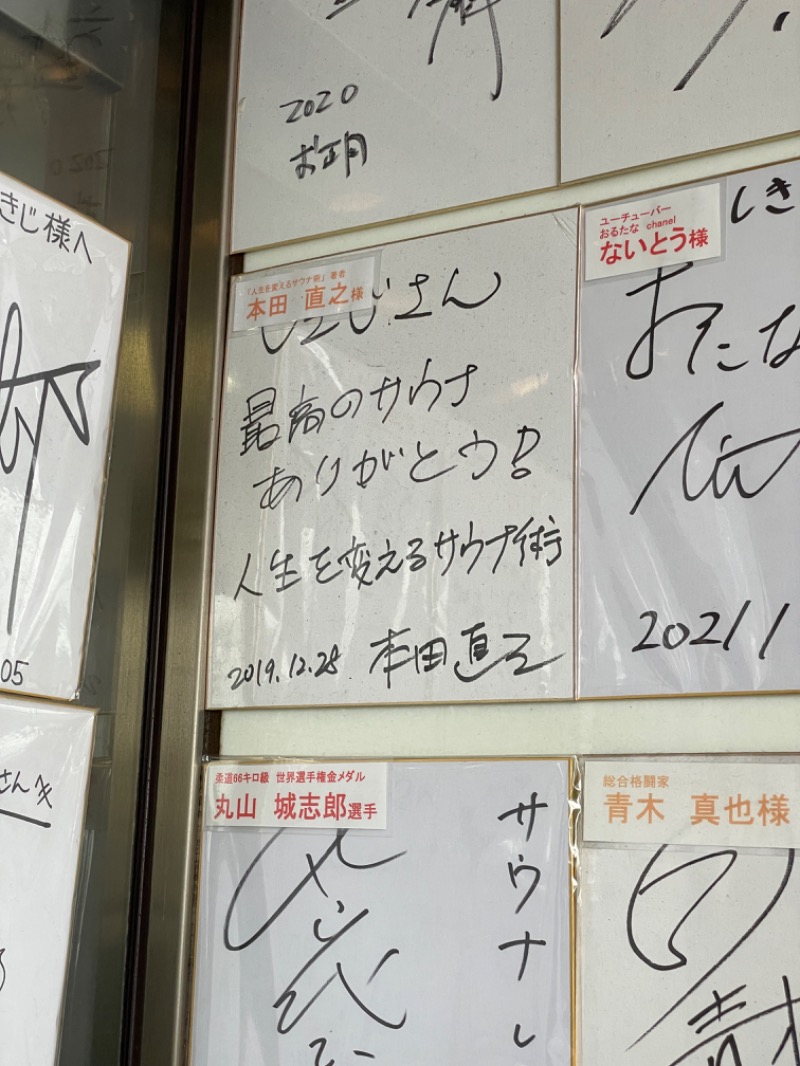 2020
お正月
きじ様へ
05
さんへ
「人生を変えるサウナ術」著者
本田 直之様
しきじさん
最高のサウナ
ありがとう!
人生を変えるサウナ術
2019.12.28 本田直之
ユーチューバー
おるたな chanel
ないとう様
しき
おるたな
2021 1
柔道66キロ級 世界選手権金メダル
丸山 城志郎選手
サウナし
総合格闘家
青木 真也様